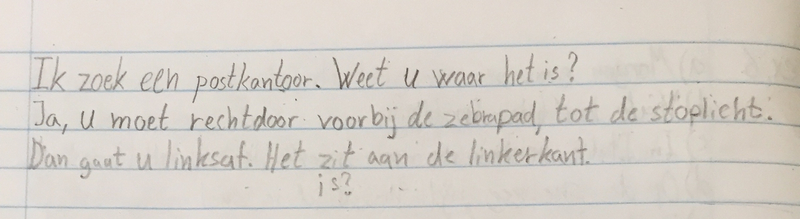 Ik zoek een postkantoor. Weet u waar het is?
Ja, u moet rechtdoor voorbij de zebrapad, tot de stoplicht.
Dan gaat u linksaf. Het zit aan de linkerkant.
is?